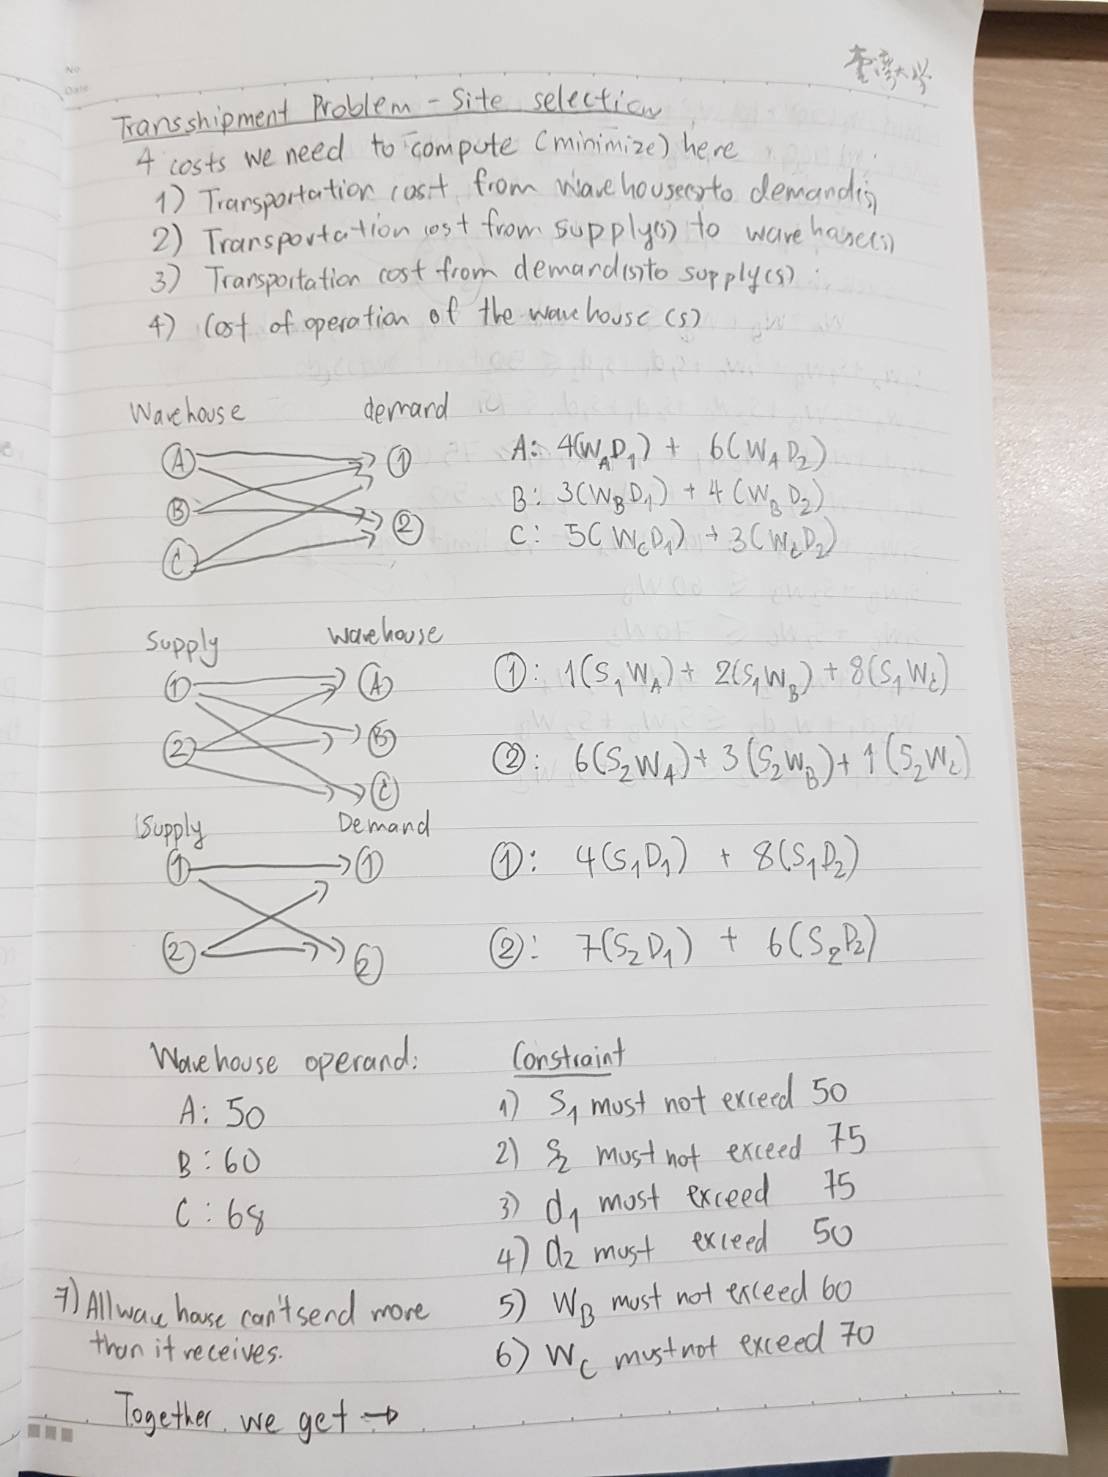 No
Date
臺灣大学
Transshipment Problem - Site selection
4 costs we need to compute (minimize) here
1) Transportation cost from warehouse(s) to demand(s)
2) Transportation cost from supply(s) to warehouse(s)
3) Transportation cost from demand(s) to supply(s)
4) Cost of operation of the warehouse (s)
Warehouse demand
A B C 1 2
A: 4(W_A D_1) + 6(W_A D_2)
B: 3(W_B D_1) + 4(W_B D_2)
C: 5(W_C D_1) + 3(W_C D_2)
Supply Warehouse
1 2 A B C
①: 1(S_1 W_A) + 2(S_1 W_B) + 8(S_1 W_C)
②: 6(S_2 W_A) + 3(S_2 W_B) + 1(S_2 W_C)
Supply Demand
1 2 1 2
①: 4(S_1 D_1) + 8(S_1 D_2)
②: 7(S_2 D_1) + 6(S_2 D_2)
Warehouse operand:
A: 50
B: 60
C: 68
Constraint
1) S_1 must not exceed 50
2) S_2 must not exceed 75
3) d_1 must exceed 75
4) d_2 must exceed 50
5) W_B must not exceed 60
6) W_C must not exceed 70
7) All warehouse can't send more
than it receives.
Together we get →